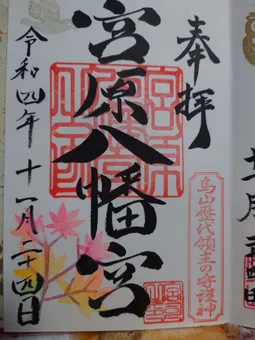 奉拝
烏山歴代領主の守護神
宮原八幡宮
令和四年十一月二十四日